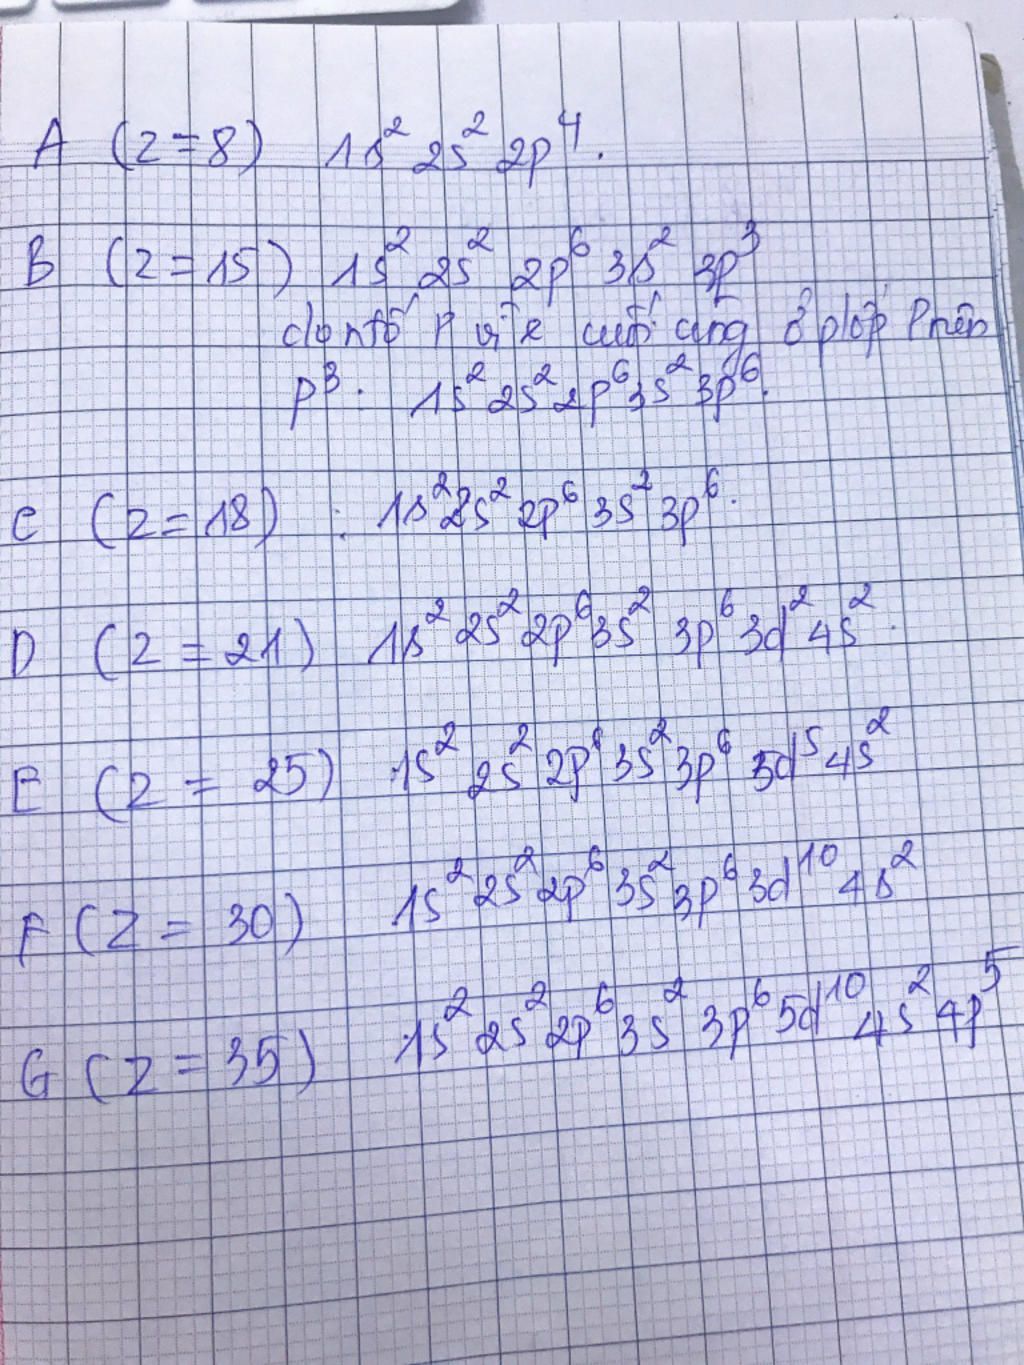 A (Z=8) 1s² 2s² 2p⁴.
B (Z=15) 1s² 2s² 2p⁶ 3s² 3p³
là ntố P vì e cuối cùng ở plớp P nên
P³⁻: 1s² 2s² 2p⁶ 3s² 3p⁶.
C (Z=18) : 1s² 2s² 2p⁶ 3s² 3p⁶.
D (Z=21) 1s² 2s² 2p⁶ 3s² 3p⁶ 3d² 4s².
E (Z=25) 1s² 2s² 2p⁶ 3s² 3p⁶ 3d⁵ 4s²
F (Z=30) 1s² 2s² 2p⁶ 3s² 3p⁶ 3d¹⁰ 4s²
G (Z=35) 1s² 2s² 2p⁶ 3s² 3p⁶ 5d¹⁰ 4s² 4p⁵